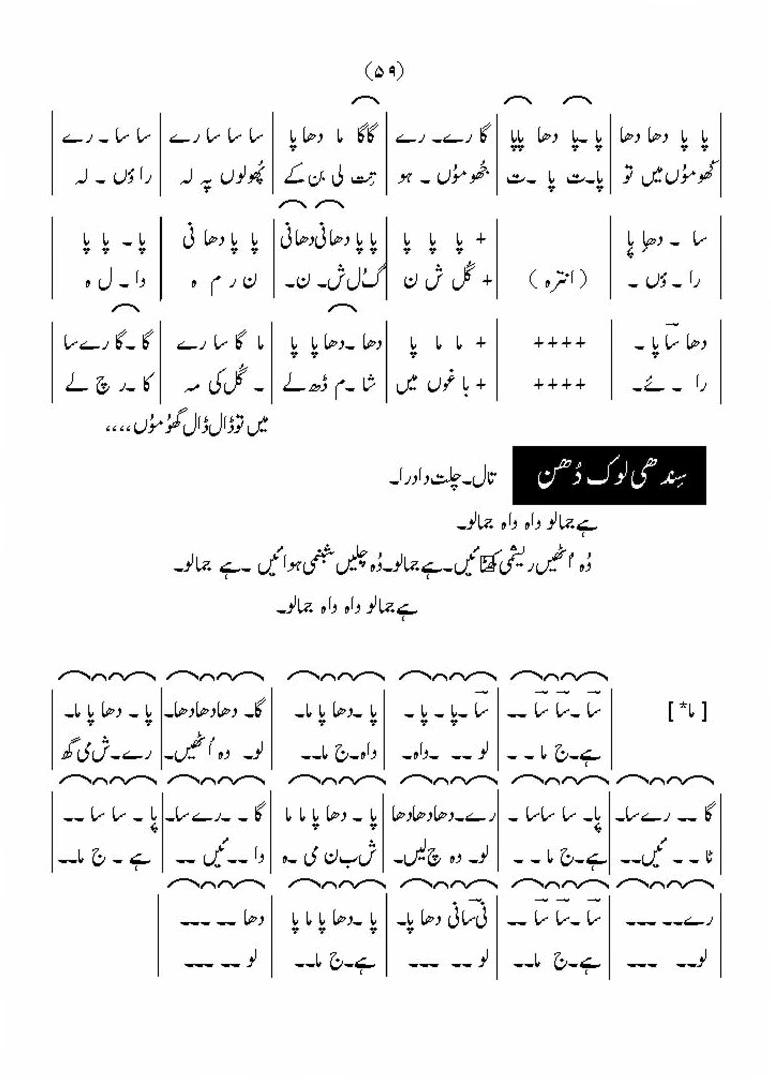 (۵۹)
پا پا دھا دھا | پا ۔پا دھا پاپا | گا رے۔ رے | گاگا ما دھا پا | سا سا سا رے | سا سا ۔ رے
گھوموُں میں تو | پا۔ت پا ۔ت | جُھوموُں ۔ ہو | تِت لی بن کے | پُھولوں پہ لہ | را وٴں ۔ لہ
سا ۔ دھا پا | + پا پا پا | پا پا دھانی دھانی | پا پا دھا نی | پا۔ پا پا
را ۔ وٴں ۔ | (انترہ) | + گُل ش ن | گُ ل ش۔ ن۔ | ن ر م ہ | دا۔ ل ہ
دھا سا پا ۔ | ++++ | + ما ما پا | دھا ۔دھا پا پا | ما گا سا رے | گا ۔گا رے سا
را ۔ ئے۔ | ++++ | + با غوں میں | شا ۔م ڈھ لے | ۔ گُل کی مہ | کا ۔ر چ لے
میں تو ڈال ڈال گھوُموُں ،،،،
سِندھی لوک دُھن
تال۔ چلت دادرا۔
ہے جمالو واہ واہ جمالو۔
وُہ اُٹھیں ریشمی گھٹائیں۔ ہے جمالو۔ وُہ چلیں شبنمی ہوائیں ۔ ہے جمالو۔
ہے جمالو واہ واہ جمالو۔
[ما*] | سا ۔سا ۔سا ۔۔ | سا ۔پا ۔ پا ۔ | پا ۔دھا پا ما۔ | گا۔ دھادھادھا۔ | پا ۔ دھا پا ما۔
ہے۔ج ما ۔ ۔ | لو ۔۔ ۔واہ۔ | واہ۔ج ما۔۔ | لو۔ وہ اُٹھیں۔ | رے۔ش می گھ
گا ۔۔ رے سا۔ | پا۔ سا ساسا ۔ | رے۔دھادھادھا | پا ۔ دھا پا ما ما | گا ۔ ۔رے سا۔ | پا ۔ سا سا ۔۔
ٹا ۔ ۔ ئیں۔۔ | ہے۔ج ما ۔ ۔ | لو۔ وہ چ لیں۔ | ش ب ن می ۔ہ | وا ۔۔ئیں ۔۔ | ہے ۔ ج ما۔۔
رے۔۔ ۔۔۔ | سا ۔سا ۔سا ۔۔ | نی سانی دھا پا۔ | پا ۔دھا پا ما پا | دھا ۔۔ ۔۔۔
لو۔۔ ۔۔۔ | ہے۔ج ما۔۔ | لو ۔۔ ۔۔۔ | ہے۔ج ما۔۔ | لو ۔۔ ۔۔۔